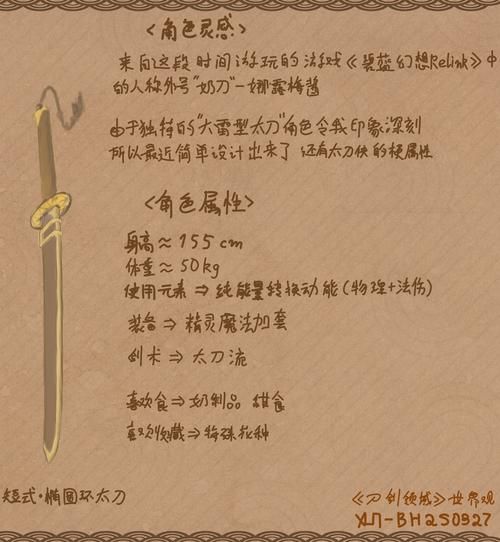 <角色灵感>
来自这段时间游玩的游戏《碧蓝幻想Relink》中
的人称外号"奶刀"-娜露梅酱
由于独特的"大雷型太刀"角色令我印象深刻
所以最近简单设计出来了 还有太刀侠的梗属性
<角色属性>
身高≈155cm
体重≈50kg
使用元素⇒纯能量转换动能(物理+法伤)
装备⇒精灵魔法加套
剑术⇒太刀流
喜欢食⇒奶制品 甜食
喜欢收藏⇒特殊花种
短式·椭圆环太刀
《刀剑领域》世界观
ХП-BH250927